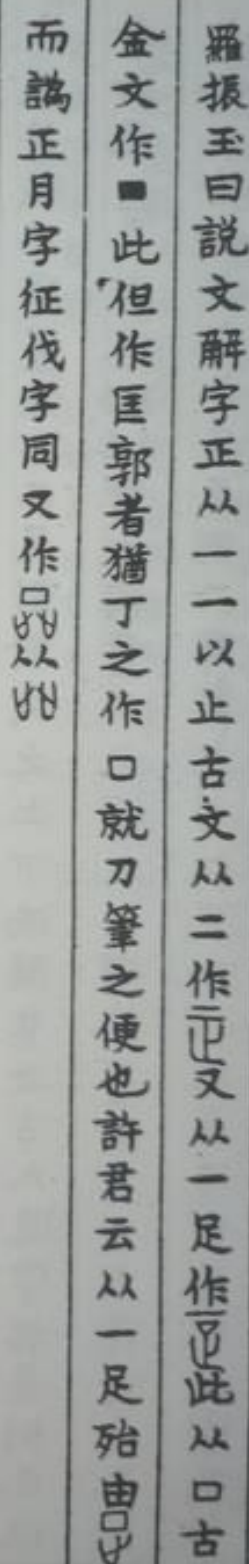 羅振玉曰説文解字正从一一以止古文从二作𤴓又从一足作𧾷此从口古
金文作■此但作匡郭者猶丁之作口就刀筆之便也許君云从一足殆由
而譌正月字征伐字同又作从